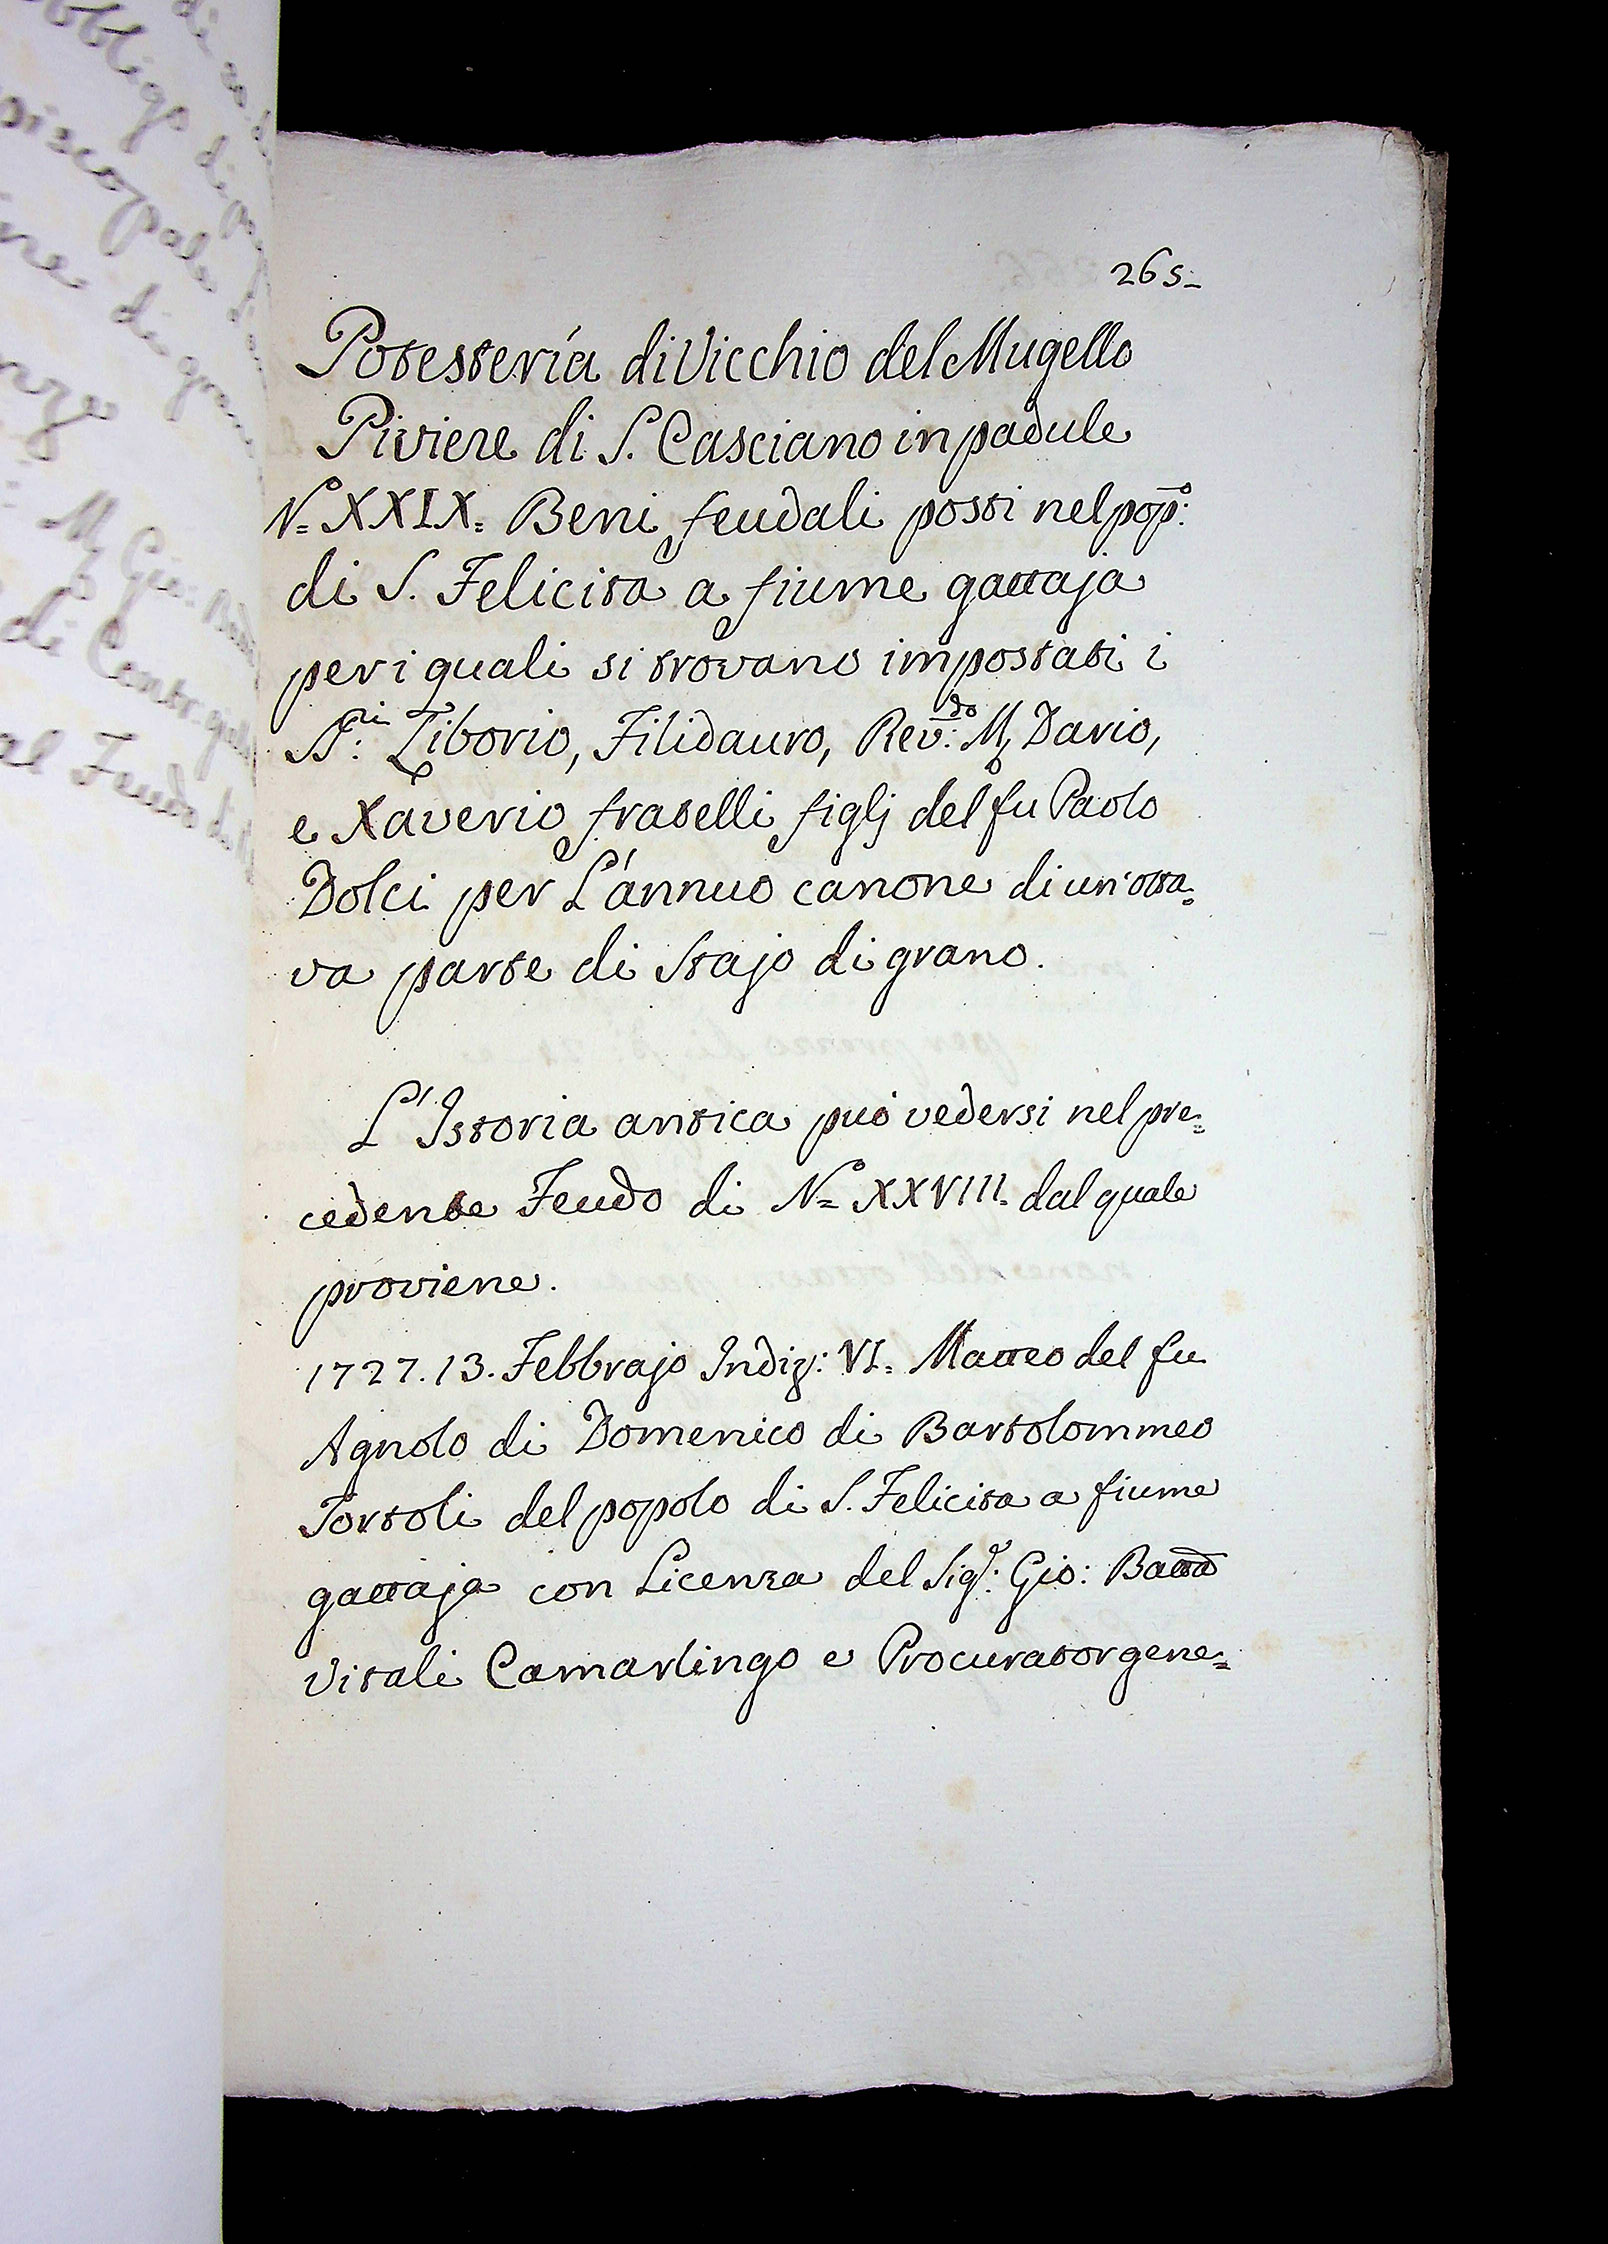 265-
Potesteria di Vicchio del Mugello
Piviere di S. Casciano in padule
N.º XXIX. Beni feudali posti nel pop.º:
di S. Felicita a fiume gattaja
per i quali si trovano impostati i
SS.ri: Liborio, Filidauro, Rev.do: M. Dario,
e Xaverio fratelli figlj del fu Paolo
Dolci per L'annuo canone di un'otta=
va parte di Stajo di grano.
L'Istoria antica può vedersi nel pre=
cedente Feudo di N.º XXVIII. dal quale
proviene.
1727. 13. Febbrajo Indiz: VI. Matteo del fu
Agnolo di Domenico di Bartolommeo
Tortoli del popolo di S. Felicita a fiume
gattaja con Licenza del Sig.r: Gio: Batta
Vitali Camarlingo e Procurator gene=